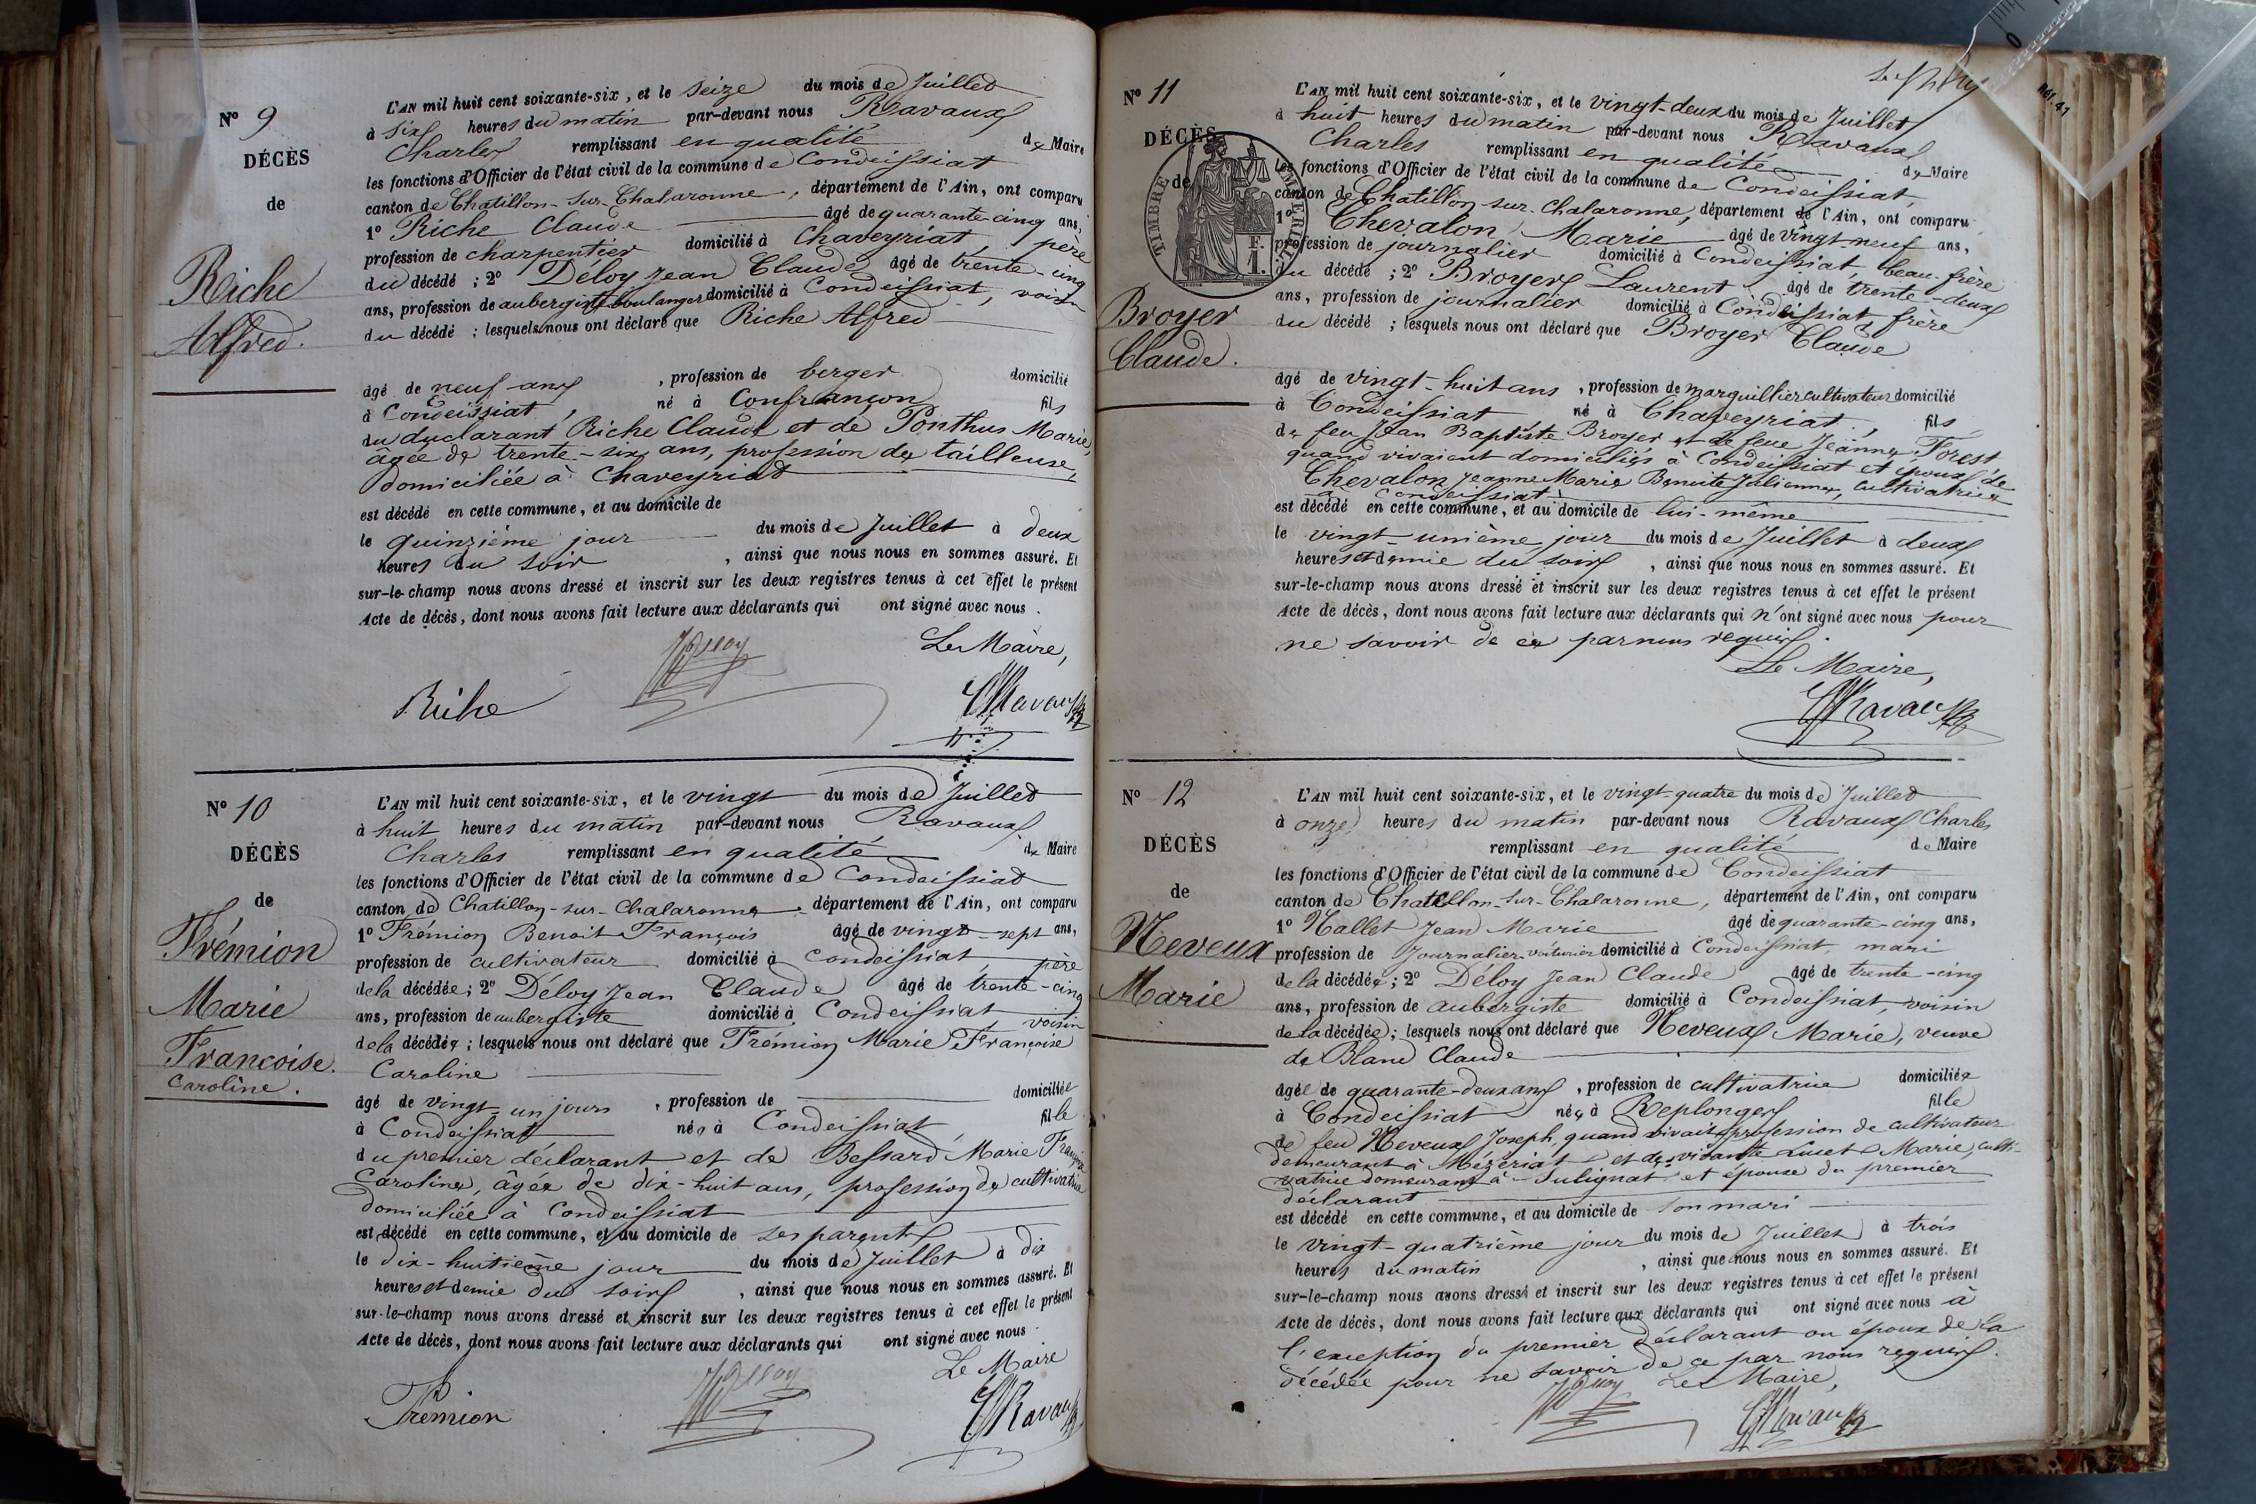 N° 9
DÉCÈS
de
Riche
Alfred.
L'AN mil huit cent soixante-six, et le seize du mois de Juillet
à six heures du matin par-devant nous Ravaux
Charles remplissant en qualité de Maire
les fonctions d'Officier de l'état civil de la commune de Condeissiat
canton de Chatillon-sur-Chalaronne, département de l'Ain, ont comparu
1° Riche Claude âgé de quarante-cinq ans,
profession de charpentier domicilié à Chaveyriat, père
du décédé ; 2° Déloy Jean Claude âgé de trente-cinq
ans, profession de aubergiste boulanger domicilié à Condeissiat, voisin
du décédé ; lesquels nous ont déclaré que Riche Alfred
âgé de neuf ans, profession de berger domicilié
à Condeissiat, né à Confrançon fils
du déclarant Riche Claude et de Ponthus Marie,
âgée de trente-six ans, profession de tailleuse,
domiciliée à Chaveyriat
est décédé en cette commune, et au domicile de
le quinzième jour du mois de Juillet à deux
heures du soir, ainsi que nous nous en sommes assuré. Et
sur-le-champ nous avons dressé et inscrit sur les deux registres tenus à cet effet le présent
Acte de décès, dont nous avons fait lecture aux déclarants qui ont signé avec nous.
Le Maire,
Riche
CRavaux
N° 10
DÉCÈS
de
Frémion
Marie
Francoise.
Caroline.
L'AN mil huit cent soixante-six, et le vingt du mois de Juillet
à huit heures du matin par-devant nous Ravaux
Charles remplissant en qualité de Maire
les fonctions d'Officier de l'état civil de la commune de Condeissiat
canton de Chatillon-sur-Chalaronne, département de l'Ain, ont comparu
1° Frémion Benoit François âgé de vingt-sept ans,
profession de cultivateur domicilié à Condeissiat, père
de la décédée ; 2° Déloy Jean Claude âgé de trente-cinq
ans, profession de aubergiste domicilié à Condeissiat voisin
de la décédée ; lesquels nous ont déclaré que Frémion Marie Françoise
Caroline
âgé de vingt-un jours, profession de domiciliée
à Condeissiat née à Condeissiat, fille
du premier déclarant et de Bessard Marie Françoise
Caroline, âgée de dix-huit ans, profession de cultivatrice
domiciliée à Condeissiat
est décédé en cette commune, et au domicile de ses parents
le dix-huitième jour du mois de Juillet à dix
heures et demie du soir, ainsi que nous nous en sommes assuré. Et
sur-le-champ nous avons dressé et inscrit sur les deux registres tenus à cet effet le présent
Acte de décès, dont nous avons fait lecture aux déclarants qui ont signé avec nous.
Le Maire
Fremion
CRavaux
N° 11
DÉCÈS
de
TIMBRE IMPERIAL
F.
1.
Broyer
Claude.
L'AN mil huit cent soixante-six, et le vingt-deux du mois de Juillet
à huit heures du matin par-devant nous Ravaux
Charles remplissant en qualité de Maire
les fonctions d'Officier de l'état civil de la commune de Condeissiat,
canton de Chatillon-sur-Chalaronne, département de l'Ain, ont comparu
1° Chevalon Marie âgé de vingt neuf ans,
profession de journalier domicilié à Condeissiat, beau-frère
du décédé ; 2° Broyer Laurent, âgé de trente-deux
ans, profession de journalier domicilié à Condeissiat, frère
du décédé ; lesquels nous ont déclaré que Broyer Claude
âgé de vingt-huit ans, profession de marguillier cultivateur domicilié
à Condeissiat né à Chaveyriat, fils
de feu Jean Baptiste Broyer et de feue Jeanne Forest
quand vivaient domiciliés à Condeissiat et époux de
Chevalon Jeanne Marie Benoite Julienne, cultivatrice
à Condeissiat
est décédé en cette commune, et au domicile de lui-même
le vingt-unième jour du mois de Juillet à deux
heures et demie du soir, ainsi que nous nous en sommes assuré. Et
sur-le-champ nous avons dressé et inscrit sur les deux registres tenus à cet effet le présent
Acte de décès, dont nous avons fait lecture aux déclarants qui n'ont signé avec nous pour
ne savoir de ce par nous requis.
Le Maire,
CRavaux
N° 12
DÉCÈS
de
Neveux
Marie
L'AN mil huit cent soixante-six, et le vingt-quatre du mois de Juillet
à onze heures du matin par-devant nous Ravaux Charles
remplissant en qualité de Maire
les fonctions d'Officier de l'état civil de la commune de Condeissiat
canton de Chatillon-sur-Chalaronne, département de l'Ain, ont comparu
1° Nallet Jean Marie âgé de quarante-cinq ans,
profession de Journalier-voiturier domicilié à Condeissiat, mari
de la décédée ; 2° Déloy Jean Claude âgé de trente-cinq
ans, profession de aubergiste domicilié à Condeissiat, voisin
de la décédée ; lesquels nous ont déclaré que Neveux Marie, veuve
de Bland Claude
agée de quarante-deux ans, profession de cultivatrice domiciliée
à Condeissiat née à Replonges fille
de feu Neveux Joseph, quand vivait profession de cultivateur
demeurant à Mézériat et de vivante Lucet Marie, culti-
vatrice demeurant à Sulignat et épouse du premier
déclarant
est décédé en cette commune, et au domicile de son mari
le vingt-quatrième jour du mois de Juillet à trois
heures du matin, ainsi que nous nous en sommes assuré. Et
sur-le-champ nous avons dressé et inscrit sur les deux registres tenus à cet effet le présent
Acte de décès, dont nous avons fait lecture aux déclarants qui ont signé avec nous à
l'exception du premier déclarant ou époux de la
décédée pour ne savoir de ce par nous requis.
Le Maire,
CRavaux